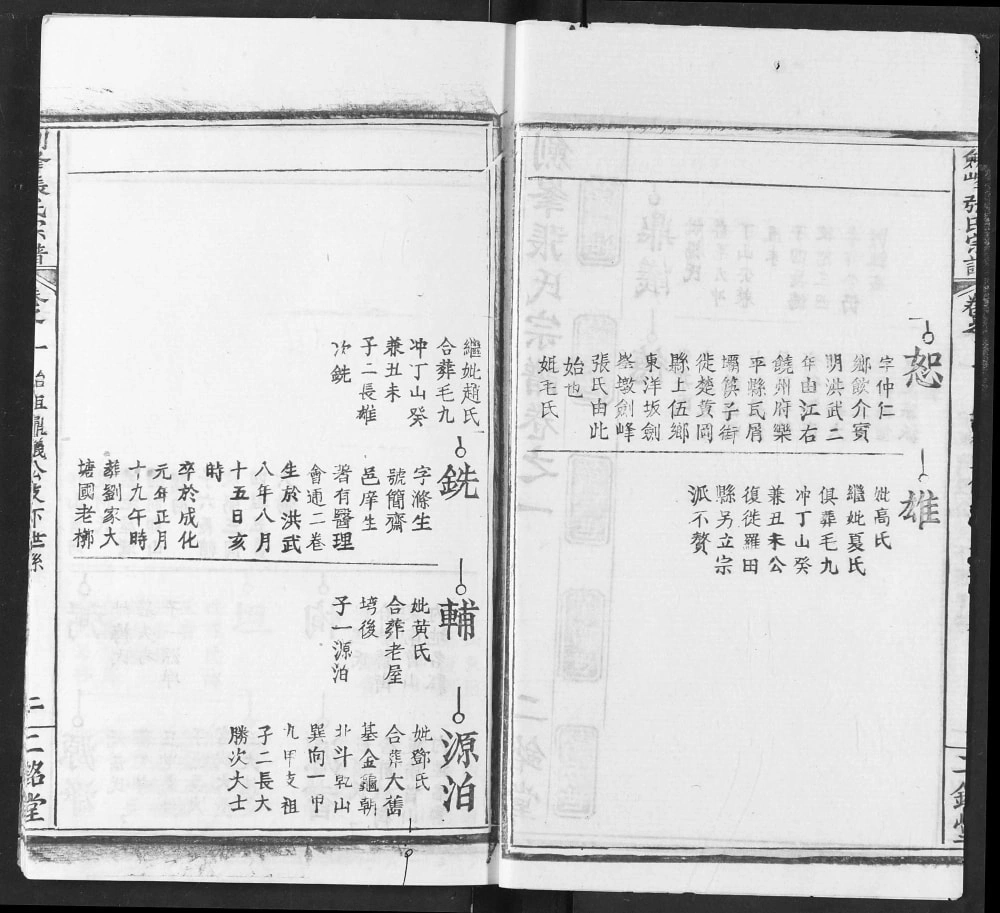 恕
字仲仁
鄉飲介賓
明洪武二
年由江右
饒州府樂
平縣瓦屑
壩筷子街
徙楚黃岡
縣上伍鄉
東洋坂劍
峯墩劍峰
張氏由此
始也
妣毛氏
雄
妣高氏
繼妣夏氏
俱葬毛九
冲丁山癸
兼丑未公
復徙羅田
縣另立宗
派不贅
繼妣趙氏
合葬毛九
冲丁山癸
兼丑未
子二長雄
次銑
銑
字滌生
號簡齋
邑庠生
著有醫理
會通二卷
生於洪武
八年八月
十五日亥
時
卒於成化
元年正月
十九午時
葬劉家大
塘國老梛
輔
妣黃氏
合葬老屋
塆後
子一源泊
源泊
妣鄧氏
合葬大舊
基金龜朝
北斗乾山
巽向一甲
九甲支祖
子二長大
勝次大士
二
二銘堂